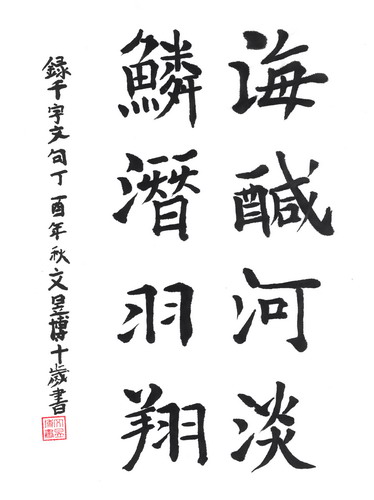 海醎河淡
鱗潛羽翔
録千字文句丁酉年秋文昱博十歲書